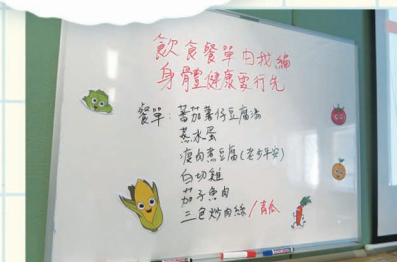 飲食餐單由我編
身體健康要行先
餐單：蕃茄薯仔豆腐湯
蒸水蛋
瘦肉煮豆腐(老少平安)
白切雞
茄子魚肉
三色炒肉絲/青瓜